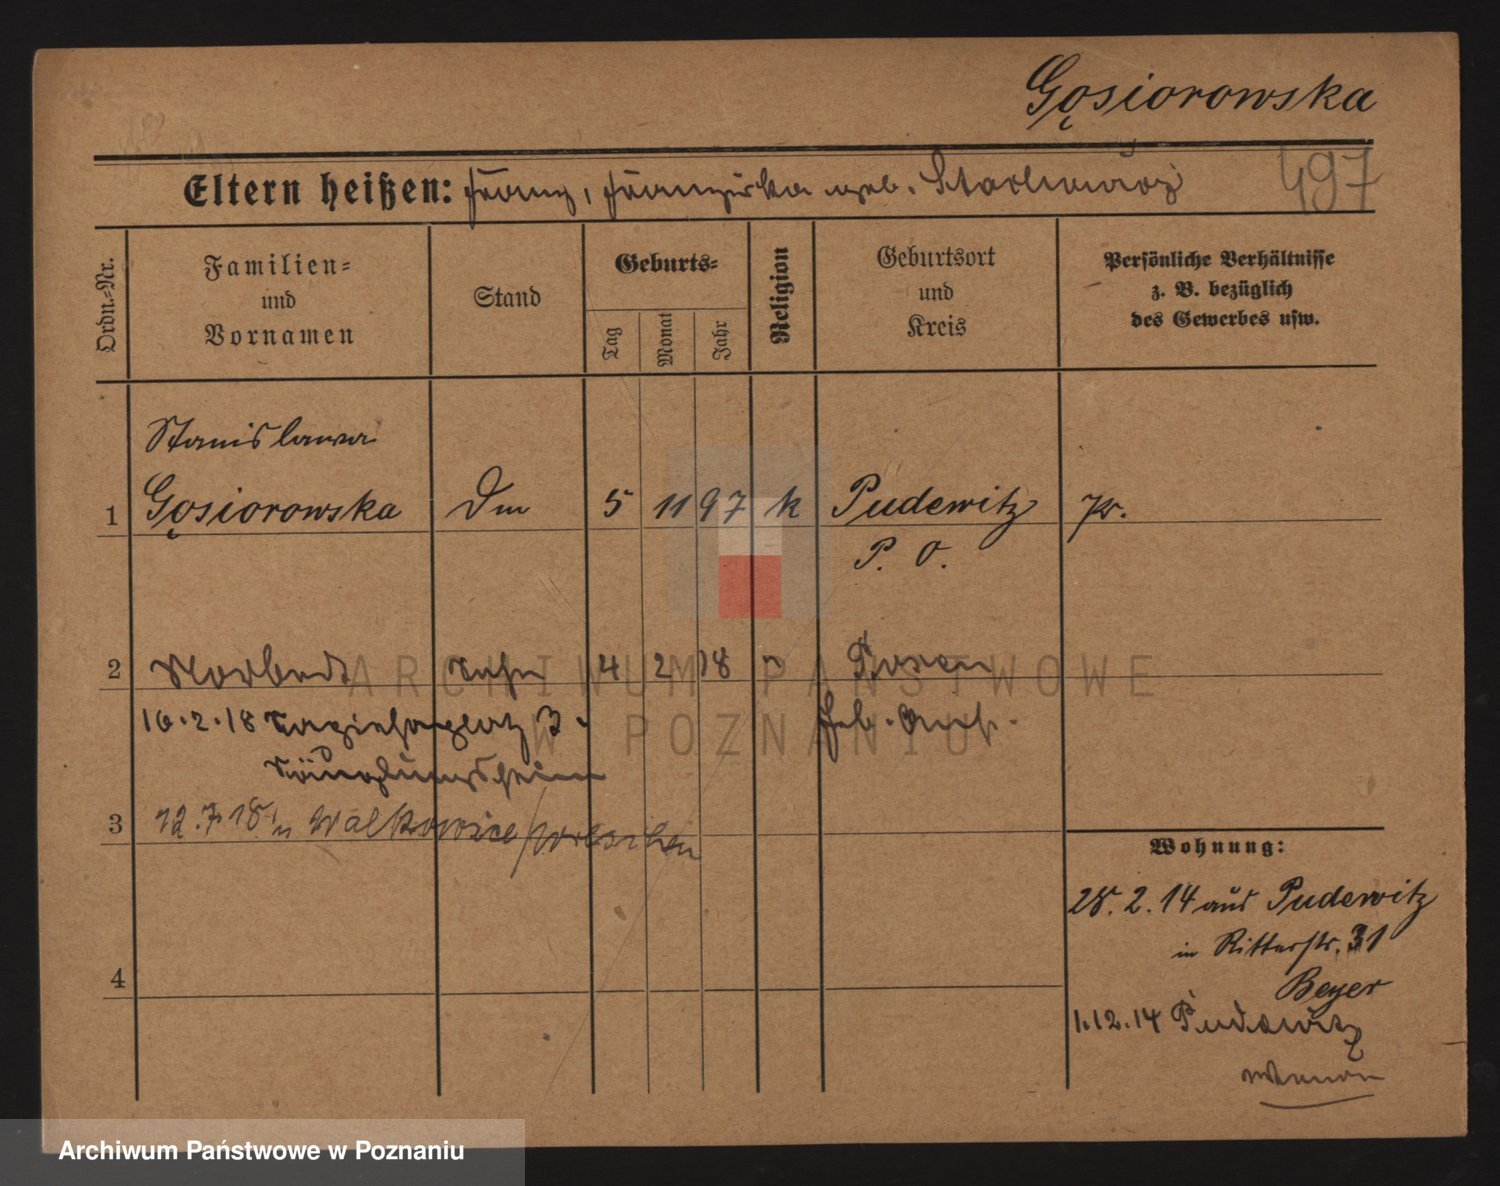 Gąsiorowska
Eltern heißen: Franz, Franziska geb.
497
Ordn.=Nr.
Familien=
und
Vornamen
Stand
Geburts=
Tag
Monat
Jahr
Religion
Geburtsort
und
Kreis
Persönliche Verhältnisse
z. B. bezüglich
des Gewerbes usw.
Stanislawa
1 Gąsiorowska Dm 5 11 97 k Pudewitz Pr.
P. O.
2 Norbert Sohn 4 2 18 " Posen
16.2.18 3.
Säuglingsheim
3 12.7.18 n Walkowice/Wreschen
Wohnung:
28.2.14 aus Pudewitz
in Ritterstr. 31
Beyer
1.12.14 Pudewitz
4
ARCHIWUM PAŃSTWOWE
W POZNANIU
Archiwum Państwowe w Poznaniu